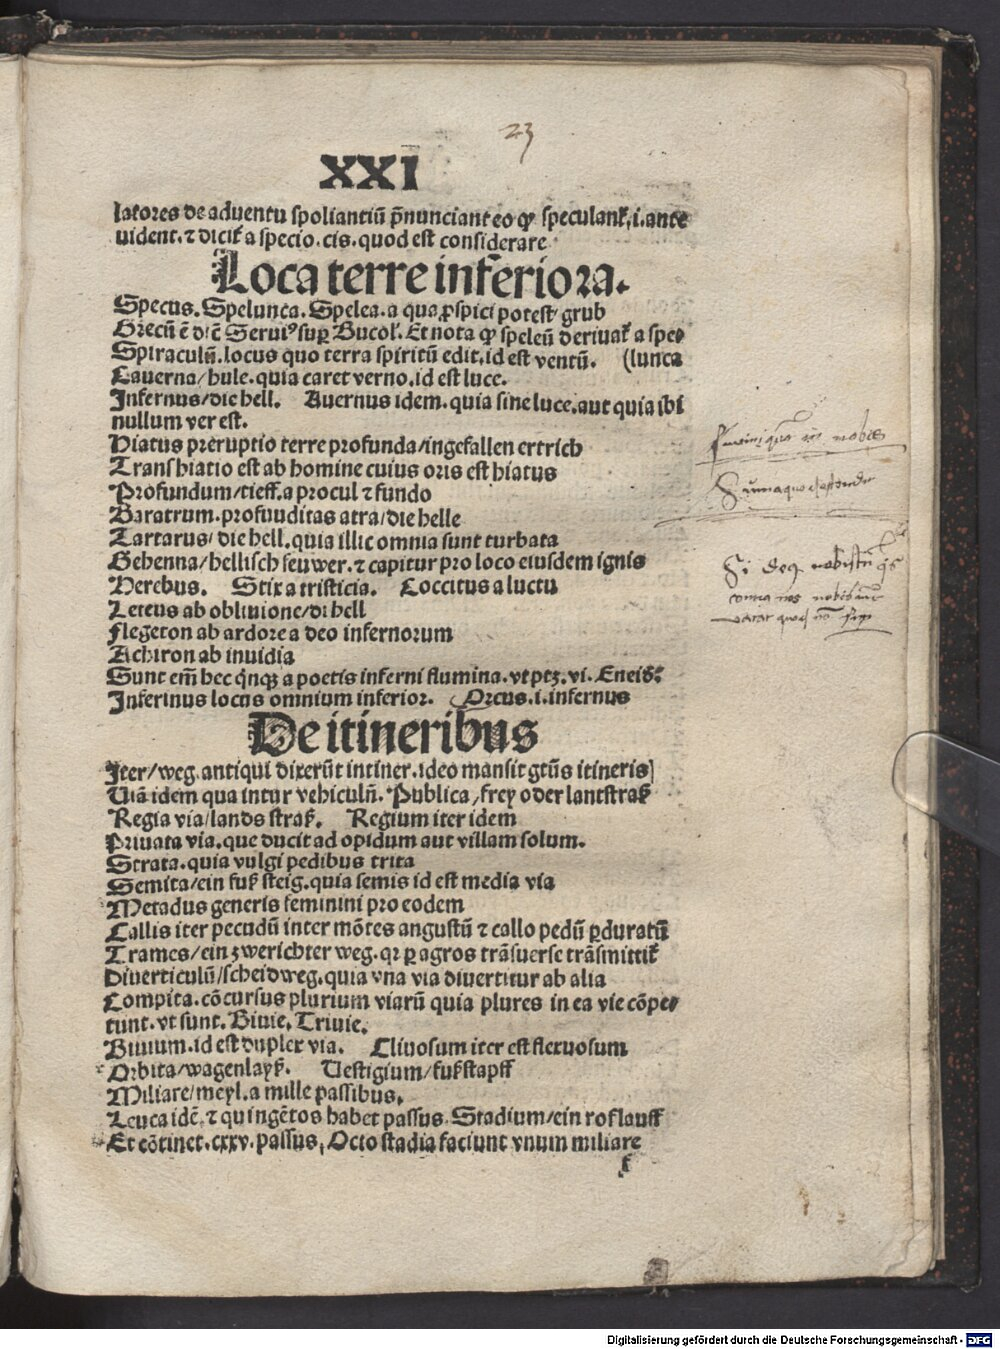 23
XXI
latores de adventu spoliantiũ p̃nunciant eo qꝫ speculant᷑,i.ante
uident.⁊ dicit᷑ a specio.cis.quod est considerare
Loca terre inferiora.
Specus.Spelunca.Spelea.a qua ꝓspici potest/grub
Grecũ ẽ dic̃ Serui⁹ sup̲ Bucol᷑. Et nota qꝫ speleũ derivat᷑ a spe⸗
Spiraculũ.locus quo terra spiritũ edit.id est ventũ. (lunca
Caverna/hule.quia caret verno.id est luce.
Infernus/die hell. Avernus idem.quia sine luce.aut quia ibi
nullum ver est.
Hiatus preruptio terre profunda/ingefallen ertrich
Transhiatio est ab homine cuius oris est hiatus
Profundum/tieff.a procul ⁊ fundo
Baratrum.profunditas atra/die helle
Tartarus/die hell.quia illic omnia sunt turbata
Gehenna/hellisch feuwer.⁊ capitur pro loco eiusdem ignis
Herebus. Stix a tristicia. Coccitus a luctu
Leteus ab oblivione/di hell
Flegeton ab ardore a deo infernorum
Achiron ab invidia
Sunt em̃ hec q̃nqꝫ a poetis inferni flumina.vt ptꝫ.vi.Eneid᷑.
Inferinus locus omnium inferior. Orcus.i.infernus
De itineribus
Iter/weg.antiqui dixerũt intiner.ideo mansit gtũs itineris)
Uiã idem qua intur vehiculũ. Publica,frey oder lantstraß
Regia via/lands straß. Regium iter idem
Privata via.que ducit ad opidum aut villam solum.
Strata.quia vulgi pedibus trita
Semita/ein fuß steig.quia semis id est media via
Metadus generis feminini pro eodem
Callis iter pecudũ inter mõtes angustũ ⁊ callo pedũ ꝑduratũ
Trames/ein zwerichter weg.qꝛ ꝑ agros trãsuerse trãsmittit᷑
Diverticulũ/scheidweg.quia vna via divertitur ab alia
Compita.cõcursus plurium viarũ quia plures in ea vie cõpe⸗
tunt.vt sunt.Bivie.Trivie.
Bivium.id est duplex via. Clivosum iter est flexuosum
Orbita/wagenlayß. Uestigium/fußstapff
Miliare/meyl.a mille passibus.
Leuca idẽ.⁊ quingẽtos habet passus.Stadium/ein roflauff
Et cõtinet.cxxv.passus,Octo stadia faciunt vnum miliare
f
Digitalisierung gefördert durch die Deutsche Forschungsgemeinschaft - DFG